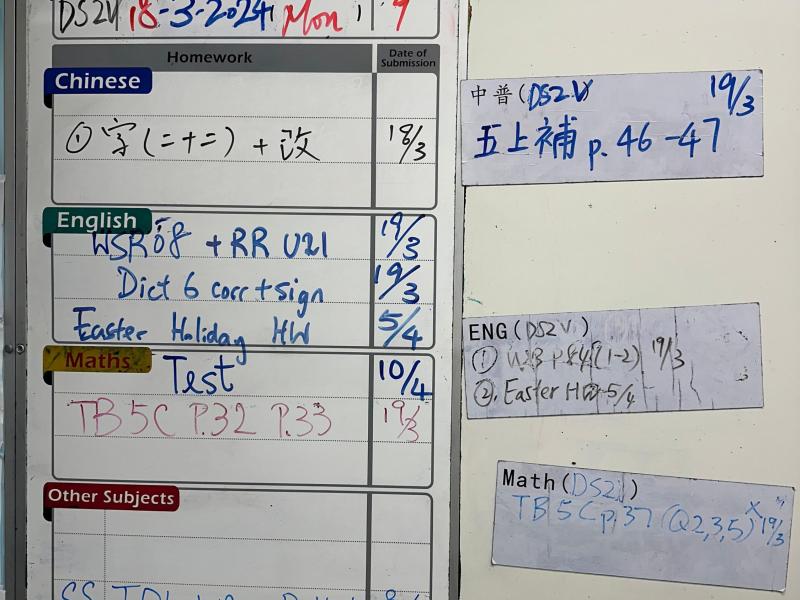 DS2V 18-3-2024 Mon 9
Homework Date of Submission
Chinese
① 字(二十二) + 改 18/3
English
WSR 08 + RR U21 19/3
Dict 6 corr + sign 19/3
Easter Holiday HW 5/4
Maths
Test 10/4
TB 5C P.32 P.33 19/3
Other Subjects
中普(DS2V) 19/3
五上補 p. 46-47
ENG(DS2V)
① WB P84 (1-2) 19/3
②. Easter HW 5/4
Math(DS2)
TB 5C p.37 (Q2,3,5) 19/3